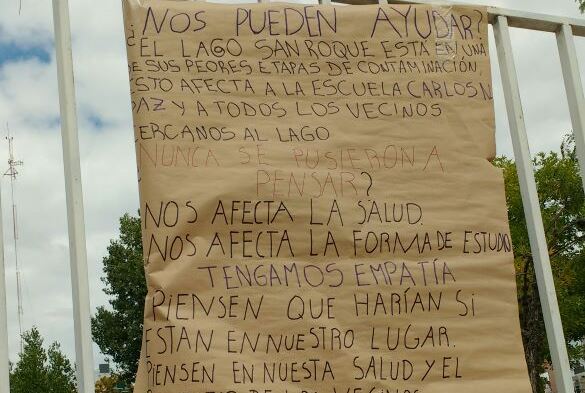 ¿NOS PUEDEN AYUDAR?
EL LAGO SAN ROQUE ESTA EN UNA
E SUS PEORES ETAPAS DE CONTAMINACIÓN,
ESTO AFECTA A LA ESCUELA CARLOS N
PAZ Y A TODOS LOS VECINOS
CERCANOS AL LAGO
NUNCA SE PUSIERON A
PENSAR?
NOS AFECTA LA SALUD.
NOS AFECTA LA FORMA DE ESTUDIO
TENGAMOS EMPATÍA
PIENSEN QUE HARÍAN SI
ESTAN EN NUESTRO LUGAR.
PIENSEN EN NUESTA SALUD Y EL